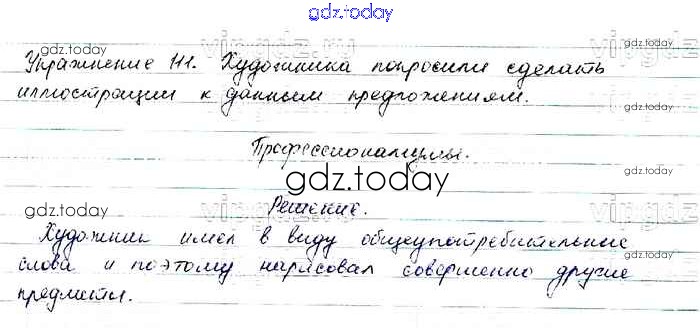 gdz.today
Упражнение 111. Художника попросили сделать
иллюстрации к данным предложениям.
Профессионализмы.
gdz.today
Решение.
Художник имел в виду общеупотребительные
слова и поэтому нарисовал совершенно другие
предметы.